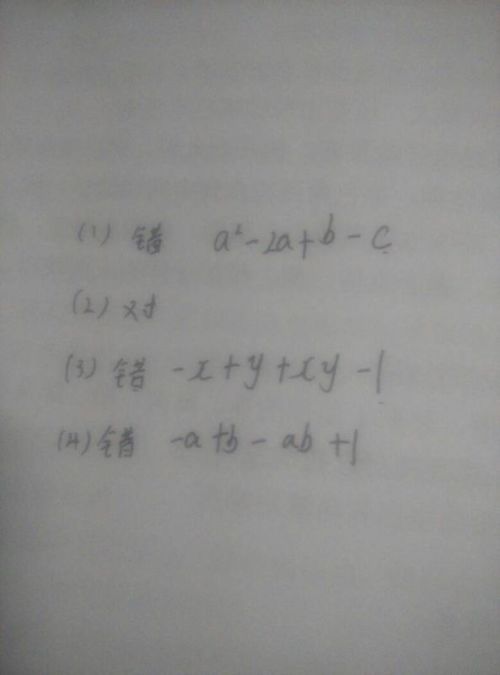 (1) 错 a²-2a+b-c
(2) 对
(3) 错 -x+y+xy-1
(4) 错 -a+b-ab+1